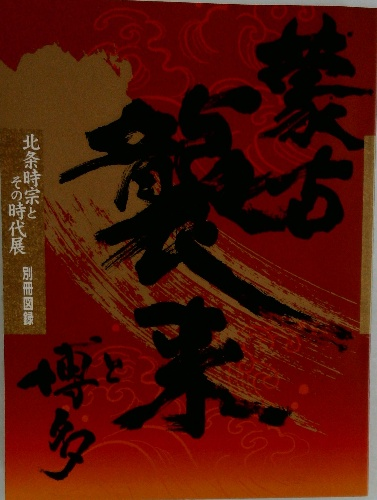 蒙古
襲来
と博多
北条時宗と
その時代展
別冊図録